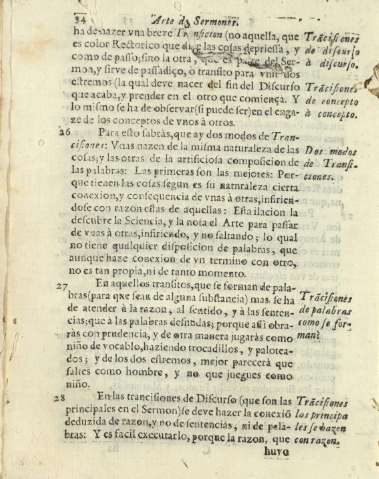 34 Arte de Sermones.
ha de hazer vna breve Transicion (no aquella, que
es color Rectorico que dize las cosas depriessa, y
como de passo; sino la otra, que es parte del Ser-
mon, y sirve de passadiço, o transito para vnir dos
estremos (la qual deve nacer del fin del Discurso
que acaba, y prender en el otro que comiença. Y
lo mismo se ha de observar (si puede ser) en el engaze
de los conceptos de vnos à otros.
Trãcisiones
de discurso
à discurso.
Trãcisiones
de concepto
à concepto.
26 Para esto sabràs, que ay dos modos de Tran-
cisiones: Vnas nacen de la misma naturaleza de las
cosas, y las otras de la artificiosa composicion de
las palabras: Las primeras son las mejores: Por-
que tienen las cosas segun es su naturaleza cierta
conexion, y consequencia de vnas à otras, infirien-
dose con razon estas de aquellas: Esta ilacion la
descubre la Sciencia, y la nota el Arte para passar
de vnas à otras, infiriendo, y no saltando; lo qual
no tiene qualquier disposicion de palabras, que
aunque haze conexion de vn termino con otro,
no es tan propia, ni de tanto momento.
Dos modos
de Transi-
ciones.
27 En aquellos transitos, que se forman de pala-
bras (para que sean de alguna substancia) mas se ha
de atender à la razon, al sentido, y à las senten-
cias; que à las palabras desnudas; porque assi obra-
ràs con prudencia, y de otra manera jugaràs como
niño de vocablo, haziendo trocadillos, y palotea-
dos; y de los dos estremos, mejor parecerà que
saltes como hombre, y no que juegues como
niño.
Trãcisiones
de palabras
como se for-
man.
28 En las trancisiones de Discurso (que son las
principales en el Sermon) se deve hazer la conexiõ
deduzida de razon, y no de sentencias, ni de pala-
bras: Y es facil executarlo, porque la razon, que
Trãcisiones
las principa
les se hazen
con razon.
huvo